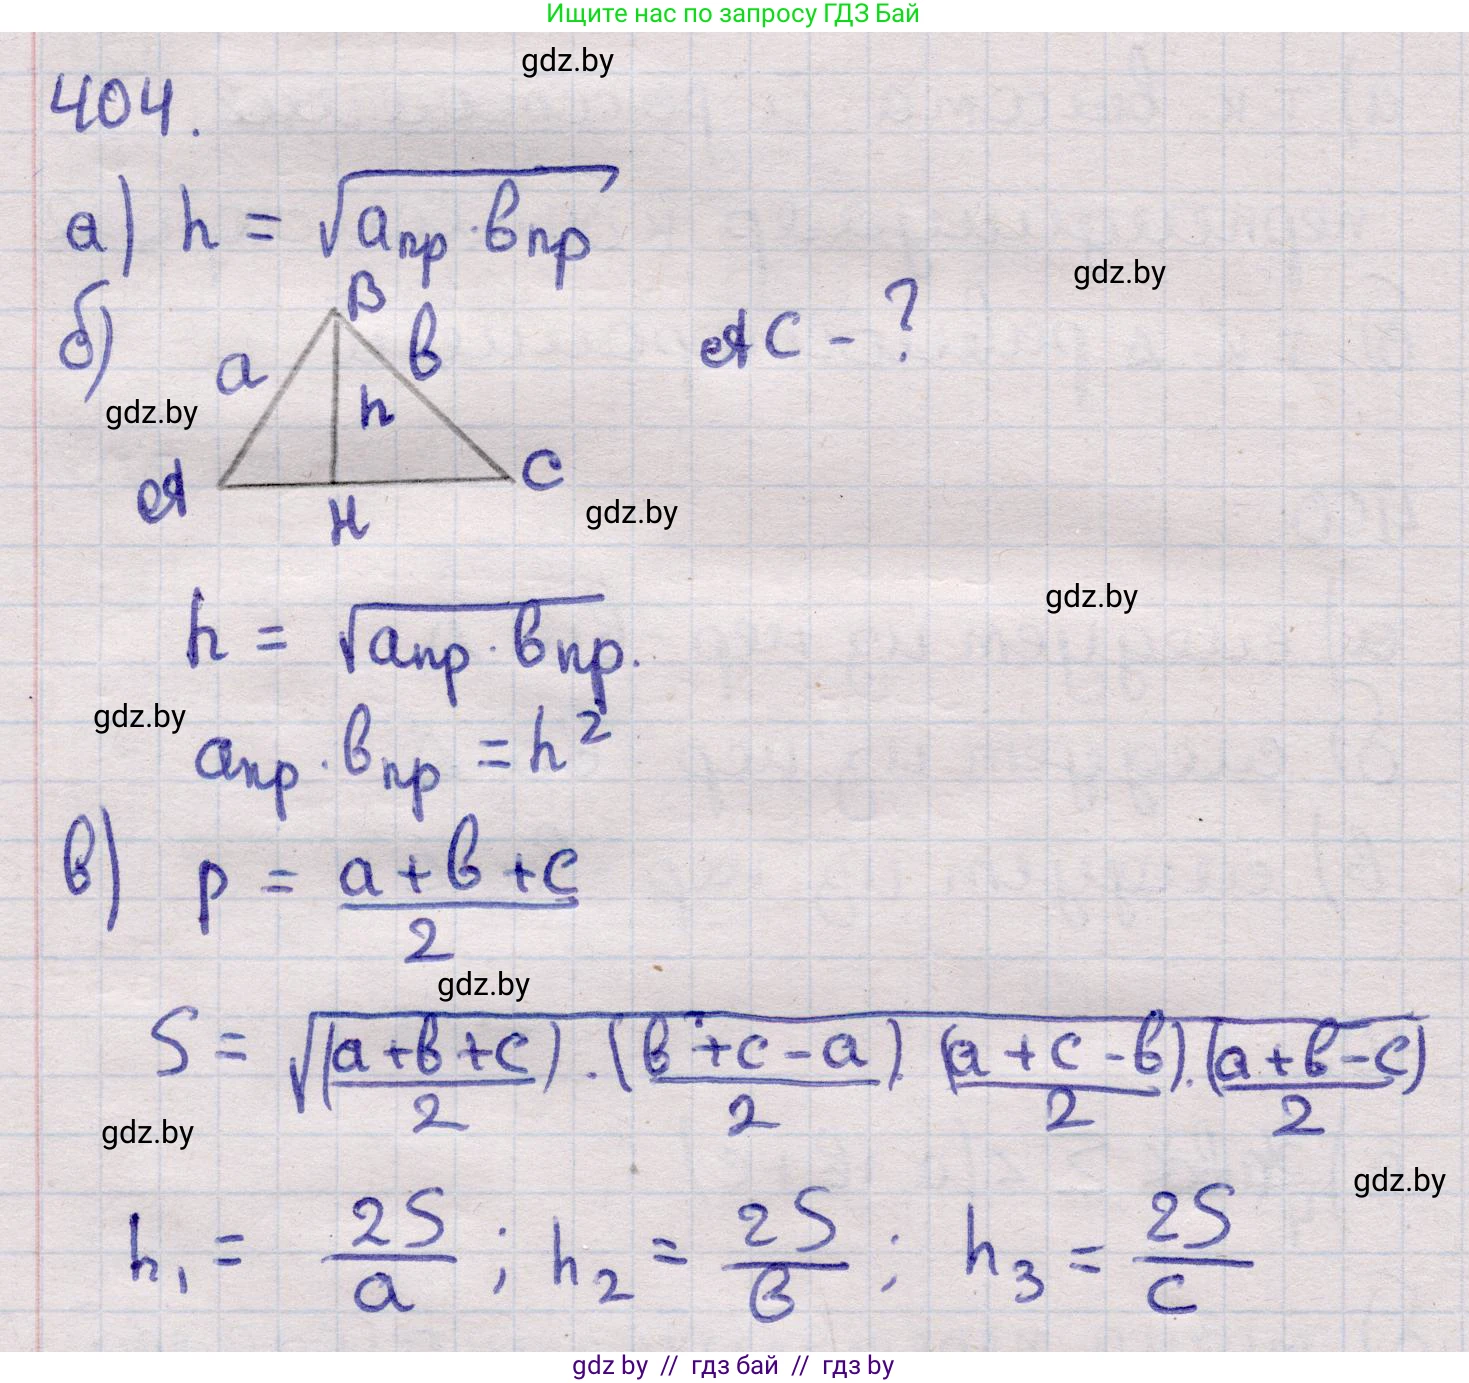 Ищите нас по запросу ГДЗ Бай
gdz.by
404.
а) h = √(aпр · bпр)
gdz.by
б)
B
a
b
h
AC - ?
gdz.by
A
C
H
gdz.by
h = √(aпр · bпр).
gdz.by
gdz.by
aпр · bпр = h²
в) p = (a+b+c)/2
gdz.by
S = √((a+b+c)/2) · ((b+c-a)/2) · ((a+c-b)/2) · ((a+b-c)/2)
gdz.by
gdz.by
h₁ = 2S/a ; h₂ = 2S/b ; h₃ = 2S/c
gdz.by // гдз бай // гдз by